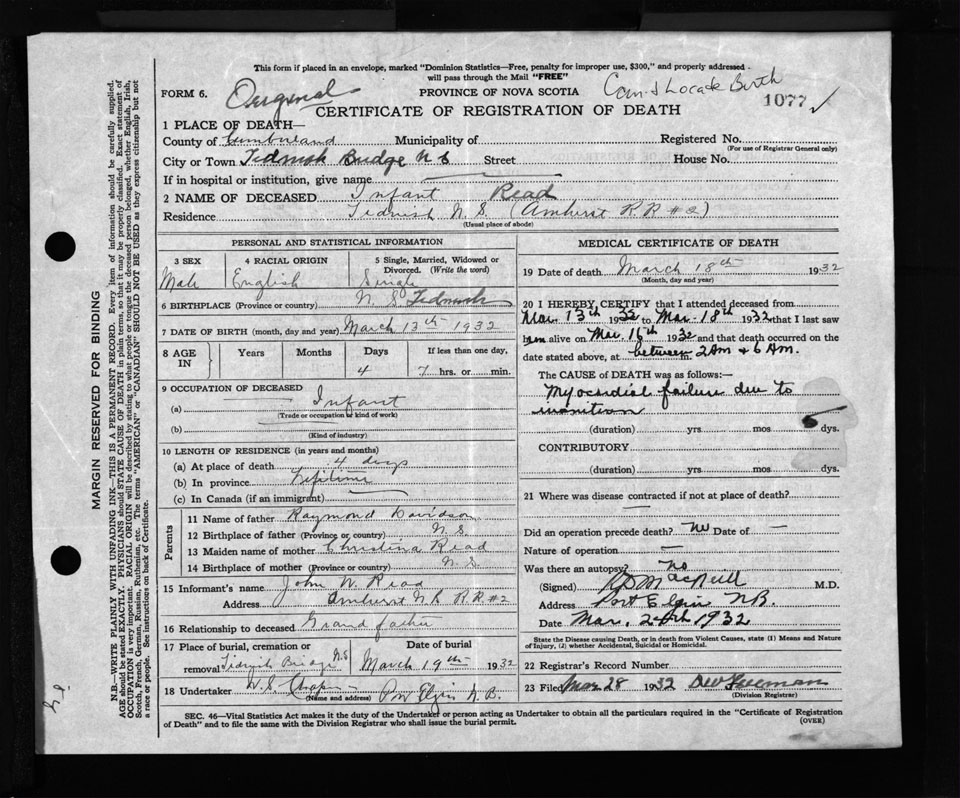 This form if placed in an envelope, marked "Dominion Statistics—Free, penalty for improper use, $300," and properly addressed
will pass through the Mail "FREE"
FORM 6. Original PROVINCE OF NOVA SCOTIA Can't Locate Birth
CERTIFICATE OF REGISTRATION OF DEATH 1077 ✓
1 PLACE OF DEATH—
County of Cumberland Municipality of Registered No.
(For use of Registrar General only)
City or Town Tidnish Bridge N S Street House No.
If in hospital or institution, give name
2 NAME OF DECEASED Infant Read
Residence Tidnish N. S. (Amherst R R #2)
(Usual place of abode)
PERSONAL AND STATISTICAL INFORMATION
3 SEX 4 RACIAL ORIGIN 5 Single, Married, Widowed or
Divorced. (Write the word)
Male English Single
6 BIRTHPLACE (Province or country) N. S. Tidnish
7 DATE OF BIRTH (month, day and year) March 13th 1932
8 AGE IN Years Months Days If less than one day,
4 7 hrs. or min.
9 OCCUPATION OF DECEASED
(a) Infant
(Trade or occupation or kind of work)
(b)
(Kind of industry)
10 LENGTH OF RESIDENCE (in years and months)
(a) At place of death 4 days
(b) In province Lifetime
(c) In Canada (if an immigrant)
Parents
11 Name of father Raymond Davidson
12 Birthplace of father (Province or country) N. S.
13 Maiden name of mother Christina Read
14 Birthplace of mother (Province or country) N. S.
15 Informant's name John W. Read
Address Amherst N.B R.R. #2
16 Relationship to deceased Grand father
17 Place of burial, cremation or Date of burial
removal Tidnish Bridge N.S March 19th 1932
18 Undertaker W. S. Port Elgin N. B.
(Name and address)
MEDICAL CERTIFICATE OF DEATH
19 Date of death March 18th 1932
(Month, day and year)
20 I HEREBY CERTIFY that I attended deceased from
Mar. 13th 1932 to Mar. 18th 1932 that I last saw
him alive on Mar. 16th 1932 and that death occurred on the
date stated above, at between 2 AM & 6 AM.
The CAUSE of DEATH was as follows:—
Myocardial failure due to
inanition
(duration) yrs mos 5 dys.
CONTRIBUTORY
(duration) yrs mos dys.
21 Where was disease contracted if not at place of death?
Did an operation precede death? No Date of —
Nature of operation —
Was there an autopsy? No
(Signed) MacNeill M.D.
Address Port Elgin N.B.
Date Mar. 24th 1932
State the Disease causing Death, or in death from Violent Causes, state (1) Means and Nature
of Injury, (2) whether Accidental, Suicidal or Homicidal.
22 Registrar's Record Number
23 Filed Mar 28 1932 Freeman
(Division Registrar)
SEC. 46—Vital Statistics Act makes it the duty of the Undertaker or person acting as Undertaker to obtain all the particulars required in the "Certificate of Registration
of Death" and to file the same with the Division Registrar who shall issue the burial permit. (OVER)
MARGIN RESERVED FOR BINDING
N.B.—WRITE PLAINLY WITH UNFADING INK—THIS IS A PERMANENT RECORD. Every item of information should be carefully supplied.
AGE should be stated EXACTLY. PHYSICIANS should STATE CAUSE OF DEATH in plain terms, so that it may be properly classified. Exact statement of
OCCUPATION is very important. RACIAL ORIGIN will be described by stating to what people or tongue the deceased person belonged, whether English, Irish,
Scotch, French, German, Russian, Ruthenian, etc. The terms "AMERICAN" or "CANADIAN" SHOULD NOT BE USED as they express citizenship but not
a race or people. See instructions on back of Certificate.